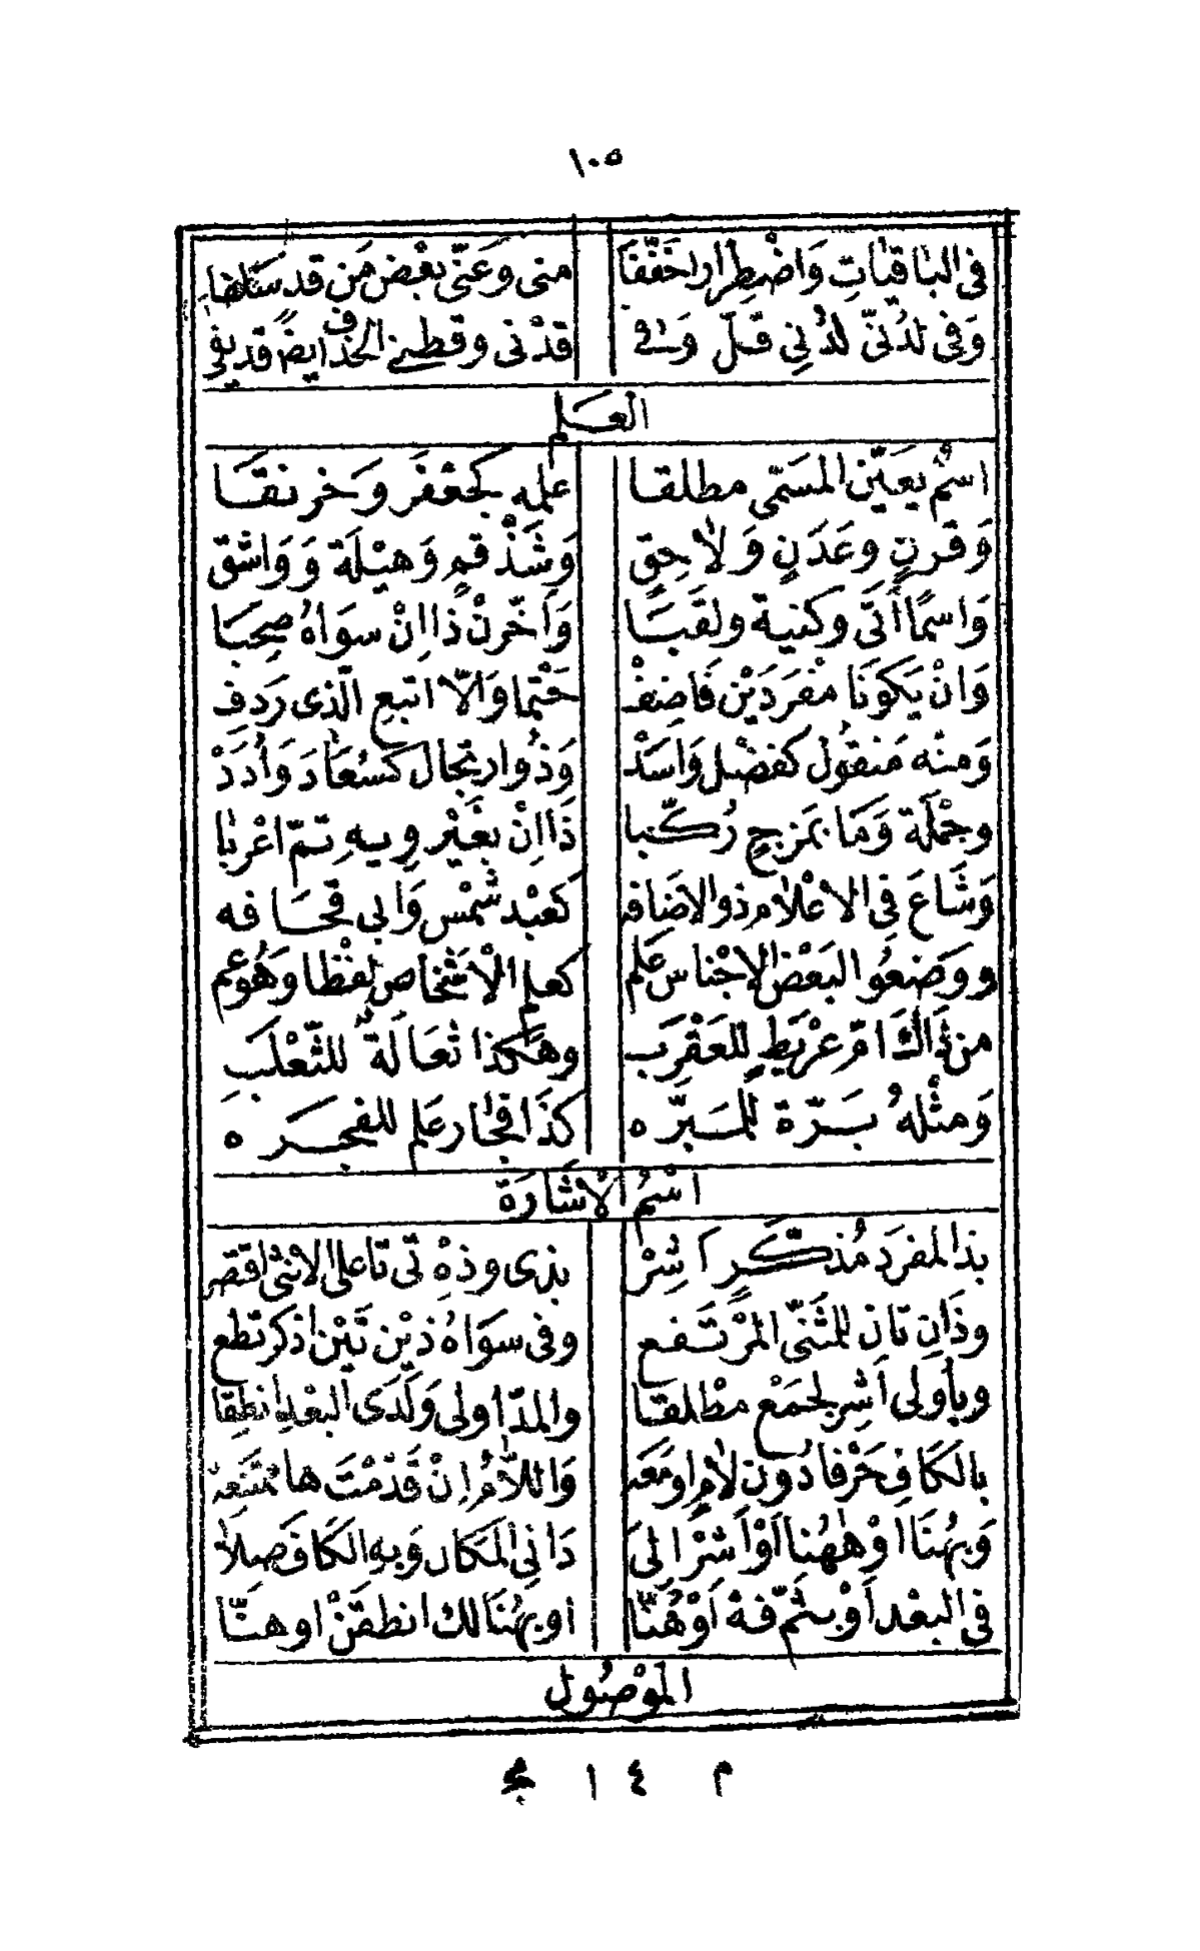 ١٠٥
في الباقيات وَاضْطِرارا خَفَّفَا منى وعَنّى بعْض مَن قد سَلفا
وَفِى لَدُنّىّ لَدُنِي قَلّ وَفى قدْنى وقطنى الحذف ايضًا قد يفى
العَلم
اسْم يعَيّن المسَمّى مطلقا علمه كجعْفَر وَخرنقَا
وَقرنٍ وعَدَنٍ وَلاحِقٍ وَشَذْقمٍ وَهيْلَة وَوَاشق
وَاسمًا أتَى وكنية ولقَبَا وَأخّرنْ ذا اِنْ سوَاهُ صحِبَا
وَانْ يَكونَا مفْرَدَيْن فَاضِفْ حَتْما وَالّا اتبعِ الّذى رَدِف
وَمنْه مَنقُول كفضْل وَاسَدْ وَذُو ارتجال كسُعَادَ وَأُدَدْ
وجُمْلَة وَمَا بمَزجٍ رُكّبا ذَا اِنْ بغَيْر ويهِ تمّ اعْربَا
وَشَاعَ فِى الاعْلام ذو الاضَافه كعَبْد شَمْس وَابي قحَافه
ووَضعُوا لبَعْض الاِجْناس عَلم كعلم الْاَشْخاص لفْظا وَهُوَ عم
من ذَاكَ امّ عرْيَطٍ للعَقْرَب وهكَذا ثعَالَةٌ للثّعْلَبِ
وَمثْلهُ بَرّة للمَبَرّه كذَا فجَار عَلم للفجَره
اسْمُ الْاشَارَة
بذا لمفرَد مُذكّرٍ اَشِرْ بذى وذهْ تى تا على الانثى اقتصر
وذَانِ تان للمثَنّى المرْتَفع وفى سوَاهُ ذيْن تَيْن اذكر تطع
وبأولى أشِر لجَمْع مطْلقا والمدّ اولى وَلَدَى البعْد انطقا
بالكَافِ حَرْفا دُون لامٍ او مَعَه وَاللّامُ اِنْ قَدّمْتَ ها ممتَنِعه
وَبهُنَا اوْ هٰهُنا اَوْ اَشِرْ اِلىَ دَانِي المَكان وَبهِ الكَافَ صِلا
فى البعْد أوْ بثَمّ فهْ اَوْ هُنّا او بهُنَالك انطقَنْ او هنّا
الموْصُول
م ٤ ١ مج